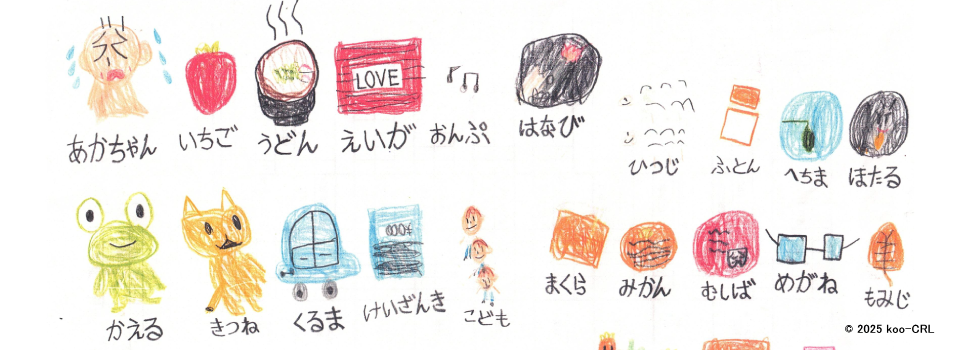 LOVE
あかちゃん いちご うどん えいが おんぷ はなび ひつじ ふとん へちま ほたる
かえる きつね くるま けいさんき こども まくら みかん むしば めがね もみじ
© 2025 koo-CRL